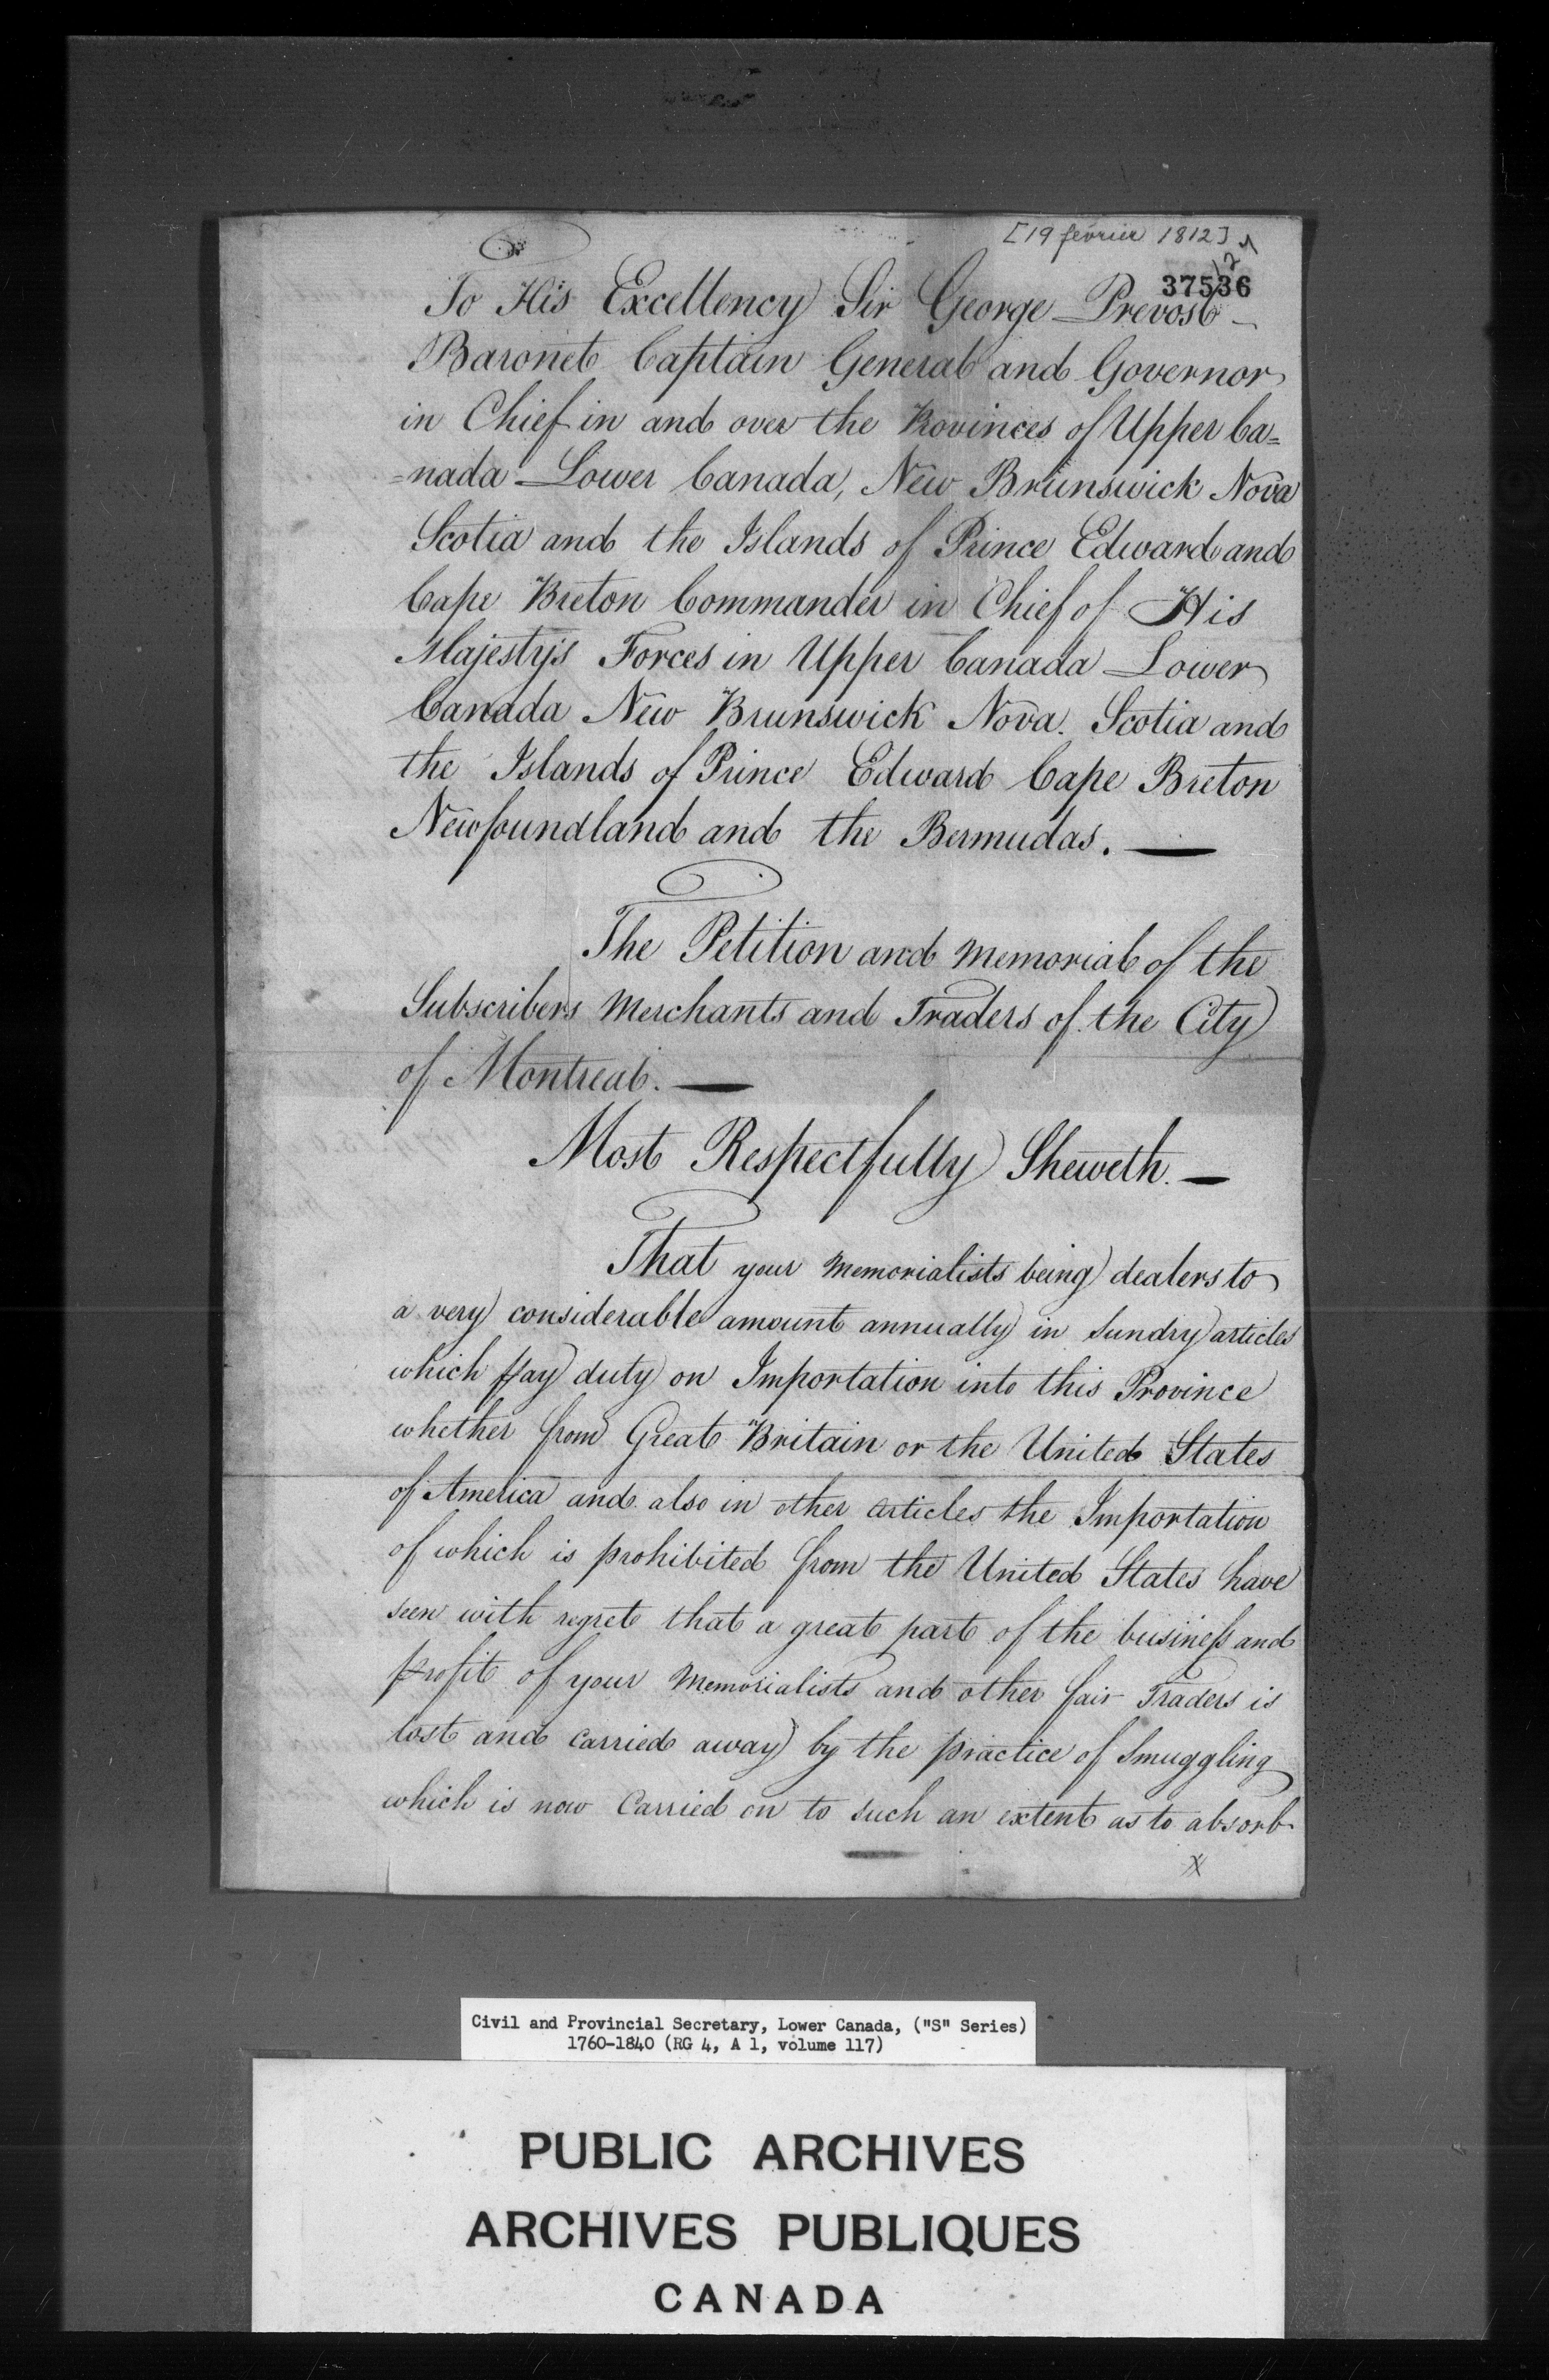 [19 février 1812]
37536
To His Excellency Sir George Prevost
Baronet Captain General and Governor
in Chief in and over the Provinces of Upper Ca=
=nada Lower Canada, New Brunswick Nova
Scotia and the Islands of Prince Edward and
Cape Breton Commander in Chief of His
Majesty's Forces in Upper Canada Lower
Canada New Brunswick Nova Scotia and
the Islands of Prince Edward Cape Breton
Newfoundland and the Bermudas. —
The Petition and Memorial of the
Subscribers Merchants and Traders of the City
of Montreal. —
Most Respectfully Sheweth. —
That your Memorialists being dealers to
a very considerable amount annually in Sundry articles
which pay duty on Importation into this Province
whether from Great Britain or the United States
of America and also in other articles the Importation
of which is prohibited from the United States have
seen with regret that a great part of the business and
profit of your Memorialists and other fair Traders is
lost and carried away by the practice of Smuggling
which is now Carried on to such an extent as to absorb
x
Civil and Provincial Secretary, Lower Canada, ("S" Series)
1760-1840 (RG 4, A 1, volume 117)
PUBLIC ARCHIVES
ARCHIVES PUBLIQUES
CANADA